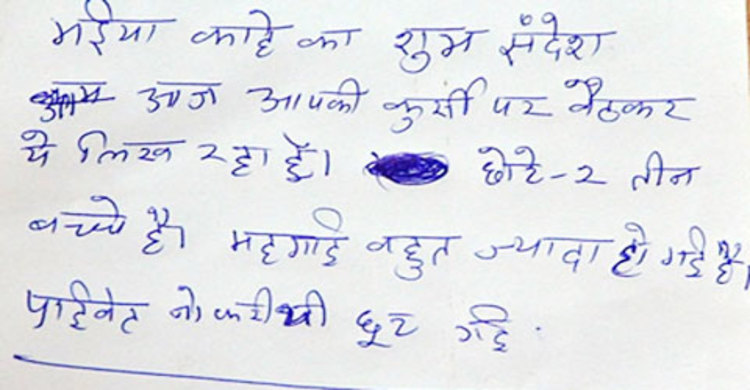 मईया काहे का शुभ संदेश
आज आपकी कुर्सी पर बैठकर
ये लिख रहा हूँ। छोटे-2 तीन
बच्चे है। महगाई बहुत ज्यादा हो गई है।
प्राईवेट नोकरी भी छूट गई.